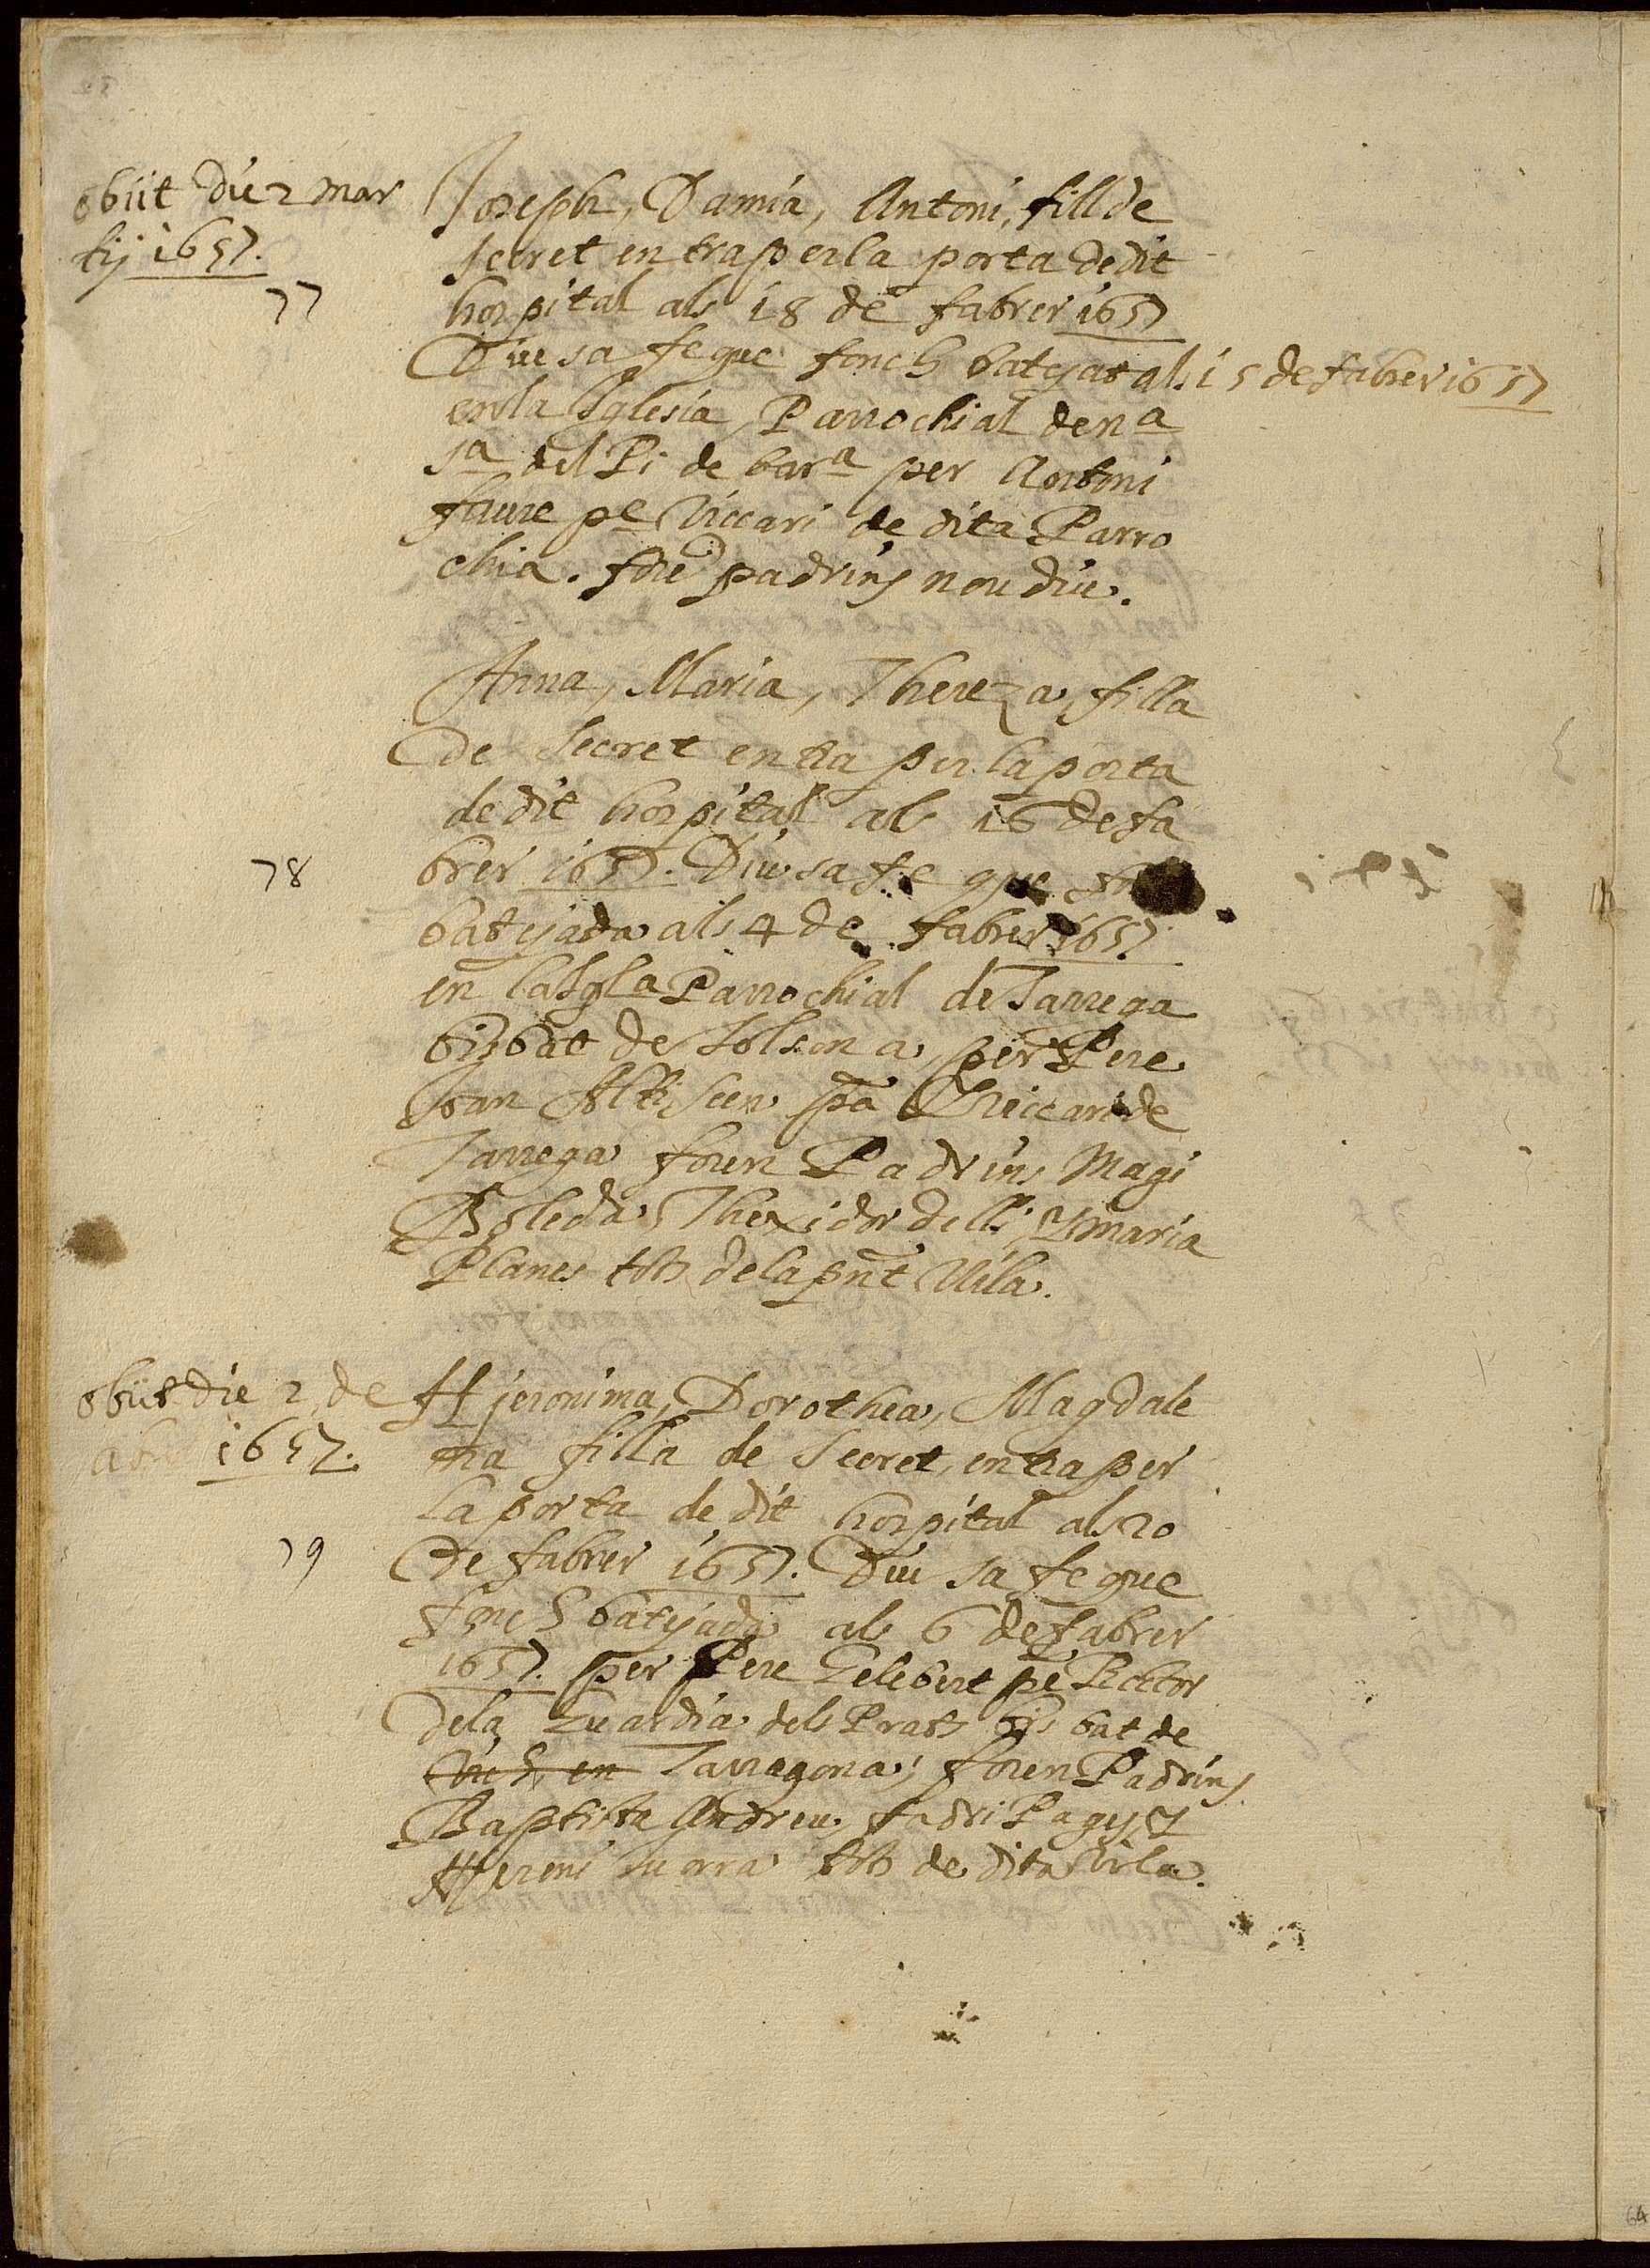 obiit die 2 mar
tij 1657.
77
Joseph, Damia, Antoni, fill de
secret entra per la porta de dit
hospital als 18 de fabrer 1657
Diu sa fe que fonch batejat als 15 de fabrer 1657
en la Iglesia Parrochial de na
sa del Pi de bara per Antoni
faure pe Viccari de dita Parro
chia. fore padrins nou diu.
Anna, Maria, Thereza, filla
de secret entra per la porta
de dit hospital als 16 de fa
78
brer 1657. Diu sa fe que
batejada als 4 de fabrer 1657
en la Igla Parrochial de Tarrega
bisbat de Solsona, per Pere
Joan Altisen pa Viccari de
Tarrega foren Padrins Magi
Boleda Thexidor de lli y maria
Planes tots de la pnt Vila.
obiit die 2 de
abr 1657.
Hjeronima, Dorothea, Magdale
na filla de secret, entra per
la porta de dit hospital als 20
79
de fabrer 1657. Diu sa fe que
fonch batejada als 6 de fabrer
1657. per Pere Gelebert pe Rector
de la Guardia dels Prats bisbat de
Vich, en Tarragona; foren Padrins
Baptista Andreu, fadri Pages y
Hjeroni tots de dita Vila.